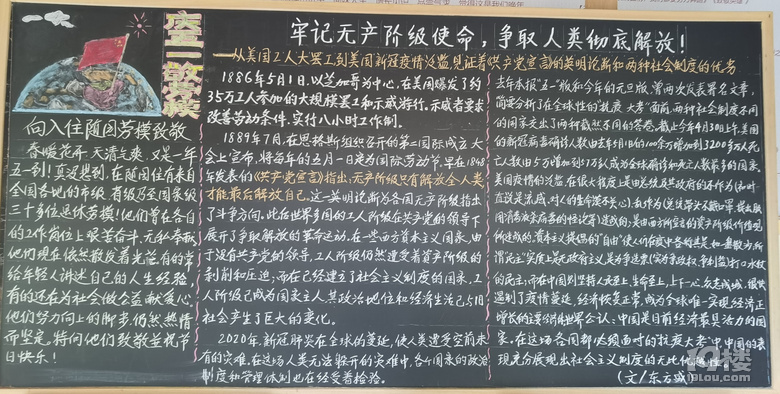 庆五一敬劳模
向入住随园劳模致敬
春暖花开，天清气爽，又是一年
五一到！真没想到，在随园住有来自
全国各地的市级、省级乃至国家级
三十多位退休劳模！他们曾在各自
的工作岗位上艰苦奋斗、无私奉献
他们现在依然散发着光芒，有的常
给年轻人讲述自己的人生经验，
有的还在为社会做公益献爱心，
他们努力向上的脚步仍然热情
而坚定。特向他们致敬并祝节
日快乐！
牢记无产阶级使命，争取人类彻底解放！
——从美国工人大罢工到美国新冠疫情泛滥，见证着《共产党宣言》的英明论断和两种社会制度的优劣
1886年5月1日，以芝加哥为中心，在美国爆发了约
35万工人参加的大规模罢工和示威游行，示威者要求
改善劳动条件，实行八小时工作制。
1889年7月，在恩格斯组织召开的第二国际成立大
会上宣布，将每年的五月一日定为国际劳动节。早在1848
年发表的《共产党宣言》指出，无产阶级只有解放全人类
才能最后解放自己。这一英明论断为各国无产阶级指出
了斗争方向。此后世界多国的工人阶级在共产党的领导下
展开了争取解放的革命运动。在一些西方资本主义国家，由
于没有共产党的领导，工人阶级仍然遭受着资产阶级的
剥削和压迫；而在已经建立了社会主义制度的国家，工
人阶级已成为国家主人，其政治地位和经济生活已与旧
社会产生了巨大的变化。
2020年，新冠肺炎在全球的蔓延，使人类遭受空前未
有的灾难。在这场人类无法躲开的灾难中，各个国家的政治
制度和管理体制也在经受着检验。
去年本报“五一”版和今年的元旦版，曾两次发表署名文章，
简要分析了在全球性的“抗疫大考”面前，两种社会制度不同
的国家交出了两种截然不同的答卷。截止今年4月30日上午，美国
的新冠病毒确诊人数由去年5月1日的100多万增加到3200多万人，死
亡人数由6万增加到57万人，成为全球确诊和死亡人数最多的国家。
美国疫情的泛滥，在很大程度上是由总统及其政府的不作为
所造成的。资本主义提倡的“自由”使人们在疫中各行其是，
所谓民主”实质上是
的民主；而在中国则坚持人民至上、生命至上，上下一心，众志成城，很快
遏制了疫情蔓延，经济恢复正常，成为全球唯一实现经济正
增长的主要经济体。世界公认，中国是目前经济最具活力的国
家。在这场各国都必须面对的“抗疫大考”中，中国的表
现充分展现出社会主义制度的无比优越性！
（文/东方盛）
19楼
19lou.com